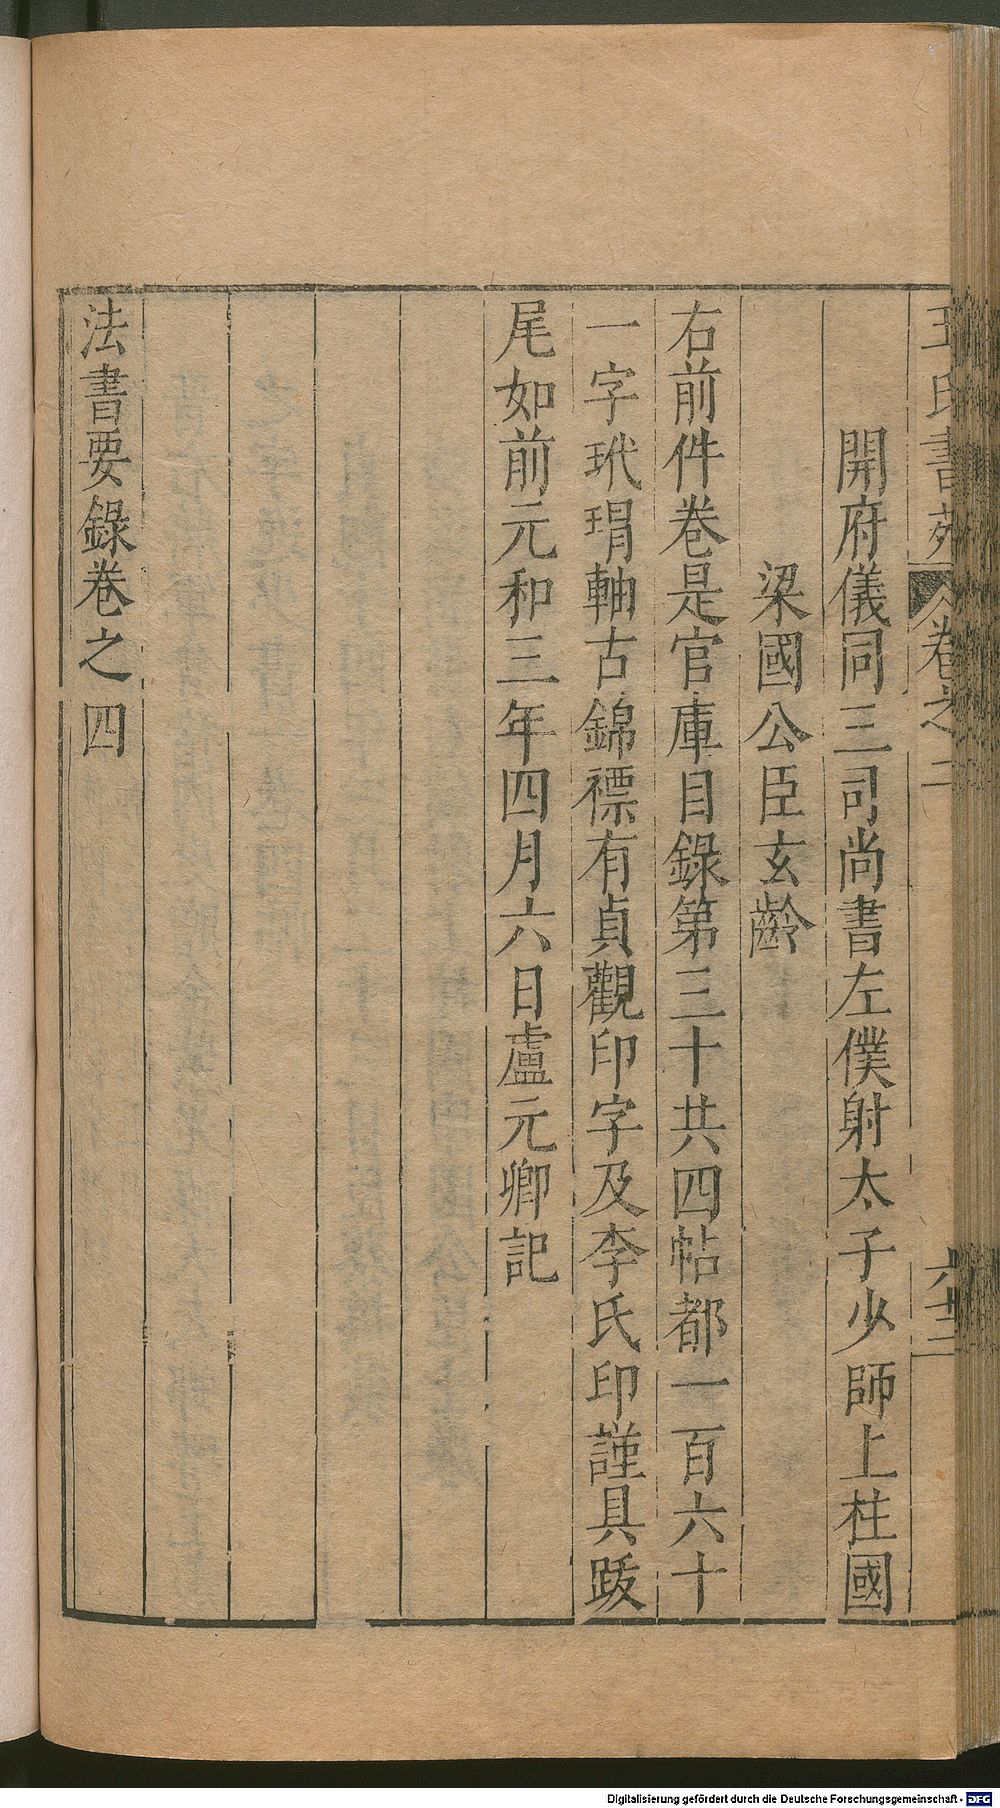 王氏書苑 卷之二 六十二
開府儀同三司尚書左僕射太子少師上柱國
梁國公臣玄齡
右前件卷是官庫目錄第三十共四帖都一百六十
一字玳瑁軸古錦褾有貞觀印字及李氏印謹具跋
尾如前元和三年四月六日盧元卿記
法書要錄卷之四
Digitalisierung gefördert durch die Deutsche Forschungsgemeinschaft - DFG